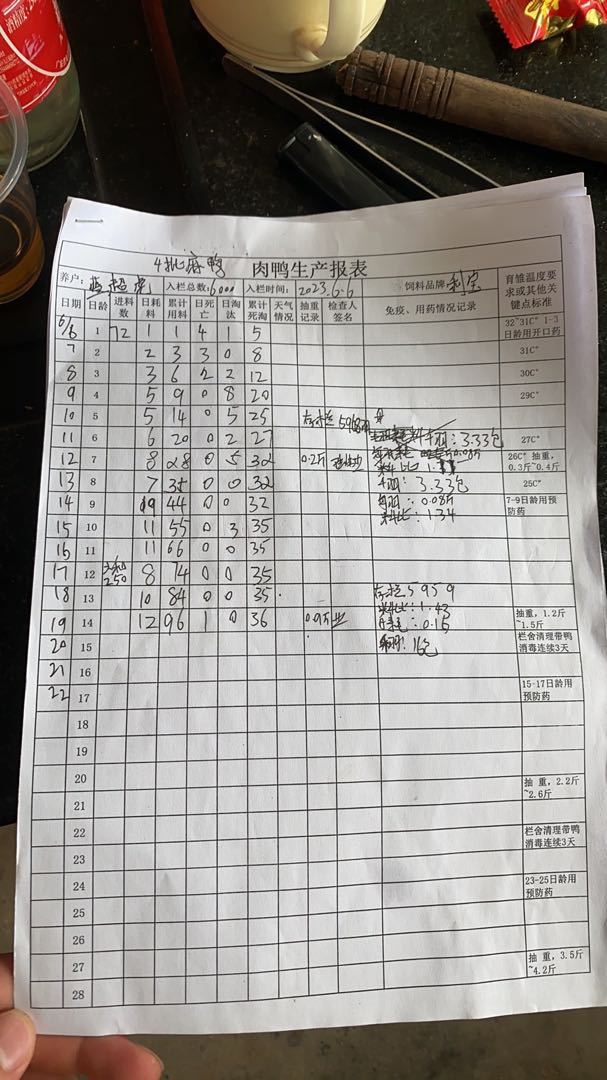 4批麻鸭 肉鸭生产报表
养户: 入栏总数:6000 入栏时间:2023.6.6 饲料品牌:利宝 育雏温度要求或其他关键点标准
日期 日龄 进料数 日耗料 累计用料 日死亡 日淘汰 累计死淘 天气情况 抽重记录 检查人签名 免疫、用药情况记录
6/6 1 72 1 1 4 1 5 32~31C° 1-3日龄用开口药
7 2 2 3 3 0 8 31C°
8 3 3 6 2 2 12 30C°
9 4 5 9 0 8 20 29C°
10 5 5 14 0 5 25 存栏 5968
11 6 6 20 0 2 27 千羽:3.33包 27C°
12 7 8 28 0 5 32 0.2斤 料比 1. 26C° 抽重,0.3斤~0.4斤
13 8 7 35 0 0 32 千羽:3.33包 25C°
14 9 9 44 0 0 32 0.08斤 料比:1.34 7-9日龄用预防药
15 10 11 55 0 3 35
16 11 11 66 0 0 35
17 12 250 8 74 0 0 35
18 13 10 84 0 0 35 存栏5959
19 14 12 96 1 0 36 料比:1.43 0.15 抽重,1.2斤~1.5斤
20 15 16包 栏舍清理带鸭消毒连续3天
21 16
22 17 15-17日龄用预防药
18
19
20 抽重,2.2斤~2.6斤
21
22 栏舍清理带鸭消毒连续3天
23
24 23-25日龄用预防药
25
26
27 抽重,3.5斤~4.2斤
28